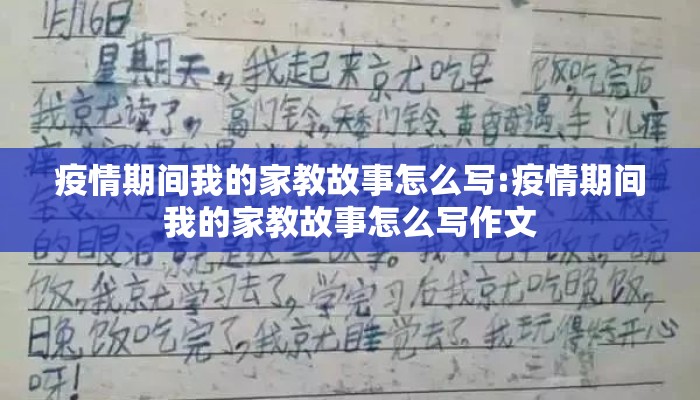 1月16日
星期天，我起来京尤吃早 饭，吃完后
我京尤读了，高门铃，矮门铃、黄昏奇遇、手丫儿痒
疫情期间我的家教故事怎么写:疫情期间
我的家教故事怎么写作文
的眼泪 京尤是这些故事。我 吃午饭了，吃完
饭，我京尤学习去了，学完习后我京尤吃晚饭，
晚饭吃完了，我京尤睡觉去了 我玩得特开心
呀！